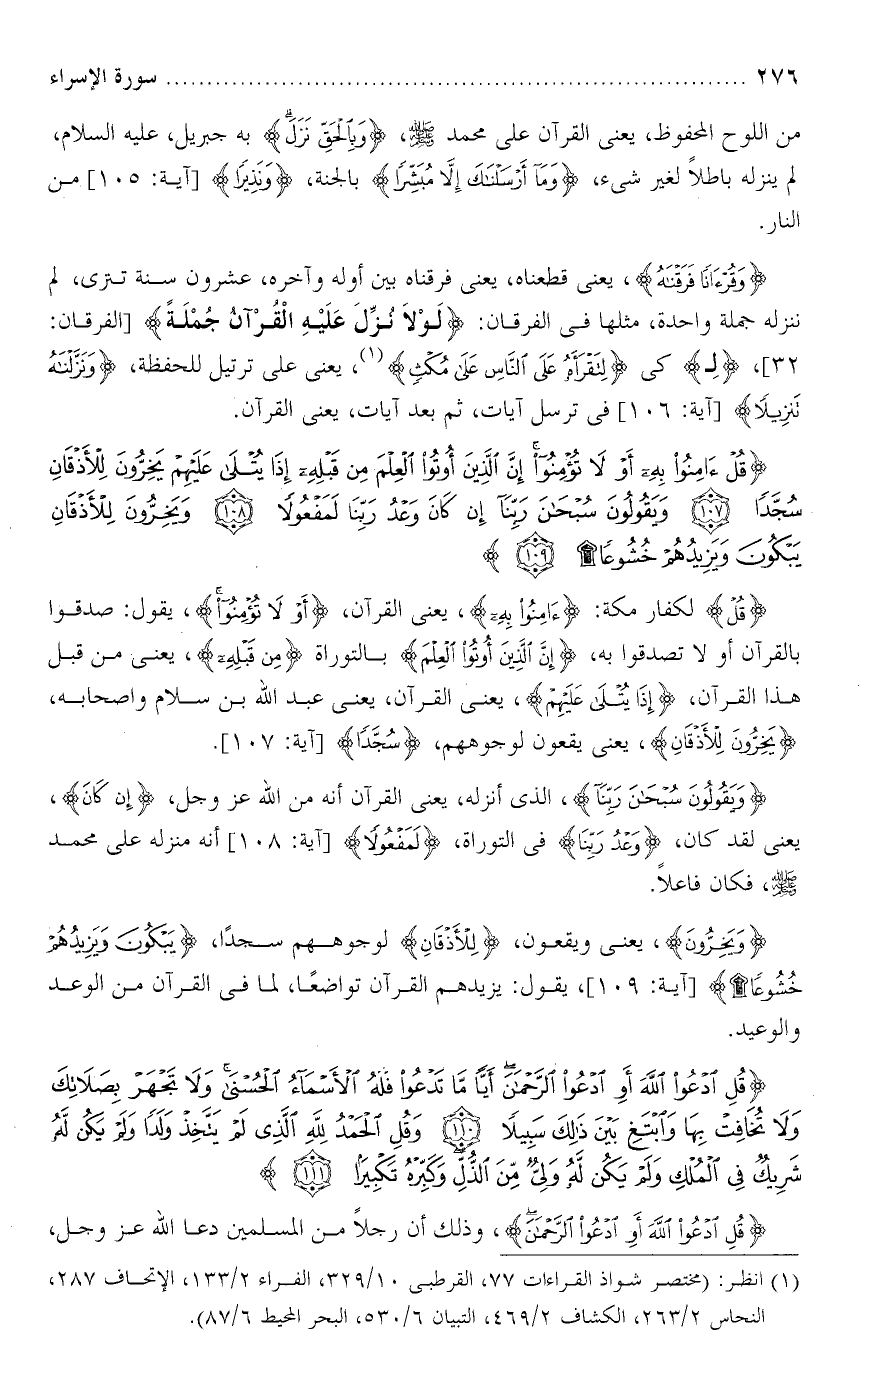 ٢٧٦ ........................................................................ سورة الإسراء
من اللوح المحفوظ، يعنى القرآن على محمد ﷺ، ﴿وَبِالْحَقِّ نَزَلَ﴾ به جبريل، عليه السلام،
لم ينزله باطلاً لغير شىء، ﴿وَمَآ أَرْسَلْنَٰكَ إِلَّا مُبَشِّرًا﴾ بالجنة، ﴿وَنَذِيرًا﴾ [آية: ١٠٥] من
النار.
﴿وَقُرْءَانًا فَرَقْنَٰهُ﴾، يعنى قطعناه، يعنى فرقناه بين أوله وآخره، عشرون سنة تترى، لم
ننزله جملة واحدة، مثلها فى الفرقان: ﴿لَوْلاَ نُزِّلَ عَلَيْهِ الْقُرْآنُ جُمْلَةً﴾ [الفرقان:
٣٢]، ﴿لِـ﴾ كى ﴿لِتَقْرَأَهُۥ عَلَى ٱلنَّاسِ عَلَىٰ مُكْثٍ﴾(١)، يعنى على ترتيل للحفظة، ﴿وَنَزَّلْنَٰهُ
تَنزِيلًا﴾ [آية: ١٠٦] فى ترسل آيات، ثم بعد آيات، يعنى القرآن.
﴿قُلْ ءَامِنُوا۟ بِهِۦٓ أَوْ لَا تُؤْمِنُوٓا۟ ۚ إِنَّ ٱلَّذِينَ أُوتُوا۟ ٱلْعِلْمَ مِن قَبْلِهِۦٓ إِذَا يُتْلَىٰ عَلَيْهِمْ يَخِرُّونَ لِلْأَذْقَانِ
سُجَّدًا ١٠٧ وَيَقُولُونَ سُبْحَٰنَ رَبِّنَآ إِن كَانَ وَعْدُ رَبِّنَا لَمَفْعُولًا ١٠٨ وَيَخِرُّونَ لِلْأَذْقَانِ
يَبْكُونَ وَيَزِيدُهُمْ خُشُوعًا ۩ ١٠٩ ﴾
﴿قُلْ﴾ لكفار مكة: ﴿ءَامِنُوا۟ بِهِۦٓ﴾، يعنى القرآن، ﴿أَوْ لَا تُؤْمِنُوٓا۟ ۚ﴾، يقول: صدقوا
بالقرآن أو لا تصدقوا به، ﴿إِنَّ ٱلَّذِينَ أُوتُوا۟ ٱلْعِلْمَ﴾ بالتوراة ﴿مِن قَبْلِهِۦٓ﴾، يعنى من قبل
هذا القرآن، ﴿إِذَا يُتْلَىٰ عَلَيْهِمْ﴾، يعنى القرآن، يعنى عبد الله بن سلام واصحابه،
﴿يَخِرُّونَ لِلْأَذْقَانِ﴾، يعنى يقعون لوجوههم، ﴿سُجَّدًا﴾ [آية: ١٠٧].
﴿وَيَقُولُونَ سُبْحَٰنَ رَبِّنَآ﴾، الذى أنزله، يعنى القرآن أنه من الله عز وجل، ﴿إِن كَانَ﴾،
يعنى لقد كان، ﴿وَعْدُ رَبِّنَا﴾ فى التوراة، ﴿لَمَفْعُولًا﴾ [آية: ١٠٨] أنه منزله على محمد
ﷺ، فكان فاعلاً.
﴿وَيَخِرُّونَ﴾، يعنى ويقعون، ﴿لِلْأَذْقَانِ﴾ لوجوههم سجدًا، ﴿يَبْكُونَ وَيَزِيدُهُمْ
خُشُوعًا ۩﴾ [آية: ١٠٩]، يقول: يزيدهم القرآن تواضعًا، لما فى القرآن من الوعد
والوعيد.
﴿قُلِ ٱدْعُوا۟ ٱللَّهَ أَوِ ٱدْعُوا۟ ٱلرَّحْمَٰنَ ۖ أَيًّا مَّا تَدْعُوا۟ فَلَهُ ٱلْأَسْمَآءُ ٱلْحُسْنَىٰ ۚ وَلَا تَجْهَرْ بِصَلَاتِكَ
وَلَا تُخَافِتْ بِهَا وَٱبْتَغِ بَيْنَ ذَٰلِكَ سَبِيلًا ١١٠ وَقُلِ ٱلْحَمْدُ لِلَّهِ ٱلَّذِى لَمْ يَتَّخِذْ وَلَدًا وَلَمْ يَكُن لَّهُۥ
شَرِيكٌ فِى ٱلْمُلْكِ وَلَمْ يَكُن لَّهُۥ وَلِىٌّ مِّنَ ٱلذُّلِّ ۖ وَكَبِّرْهُ تَكْبِيرًا ١١١ ﴾
﴿قُلِ ٱدْعُوا۟ ٱللَّهَ أَوِ ٱدْعُوا۟ ٱلرَّحْمَٰنَ ۖ﴾، وذلك أن رجلاً من المسلمين دعا الله عز وجل،
(١) انظر: (مختصر شواذ القراءات ٧٧، القرطبى ٣٢٩/١٠، الفراء ١٣٣/٢، الإتحاف ٢٨٧،
النحاس ٢٦٣/٢، الكشاف ٤٦٩/٢، التبيان ٥٣٠/٦، البحر المحيط ٨٧/٦).